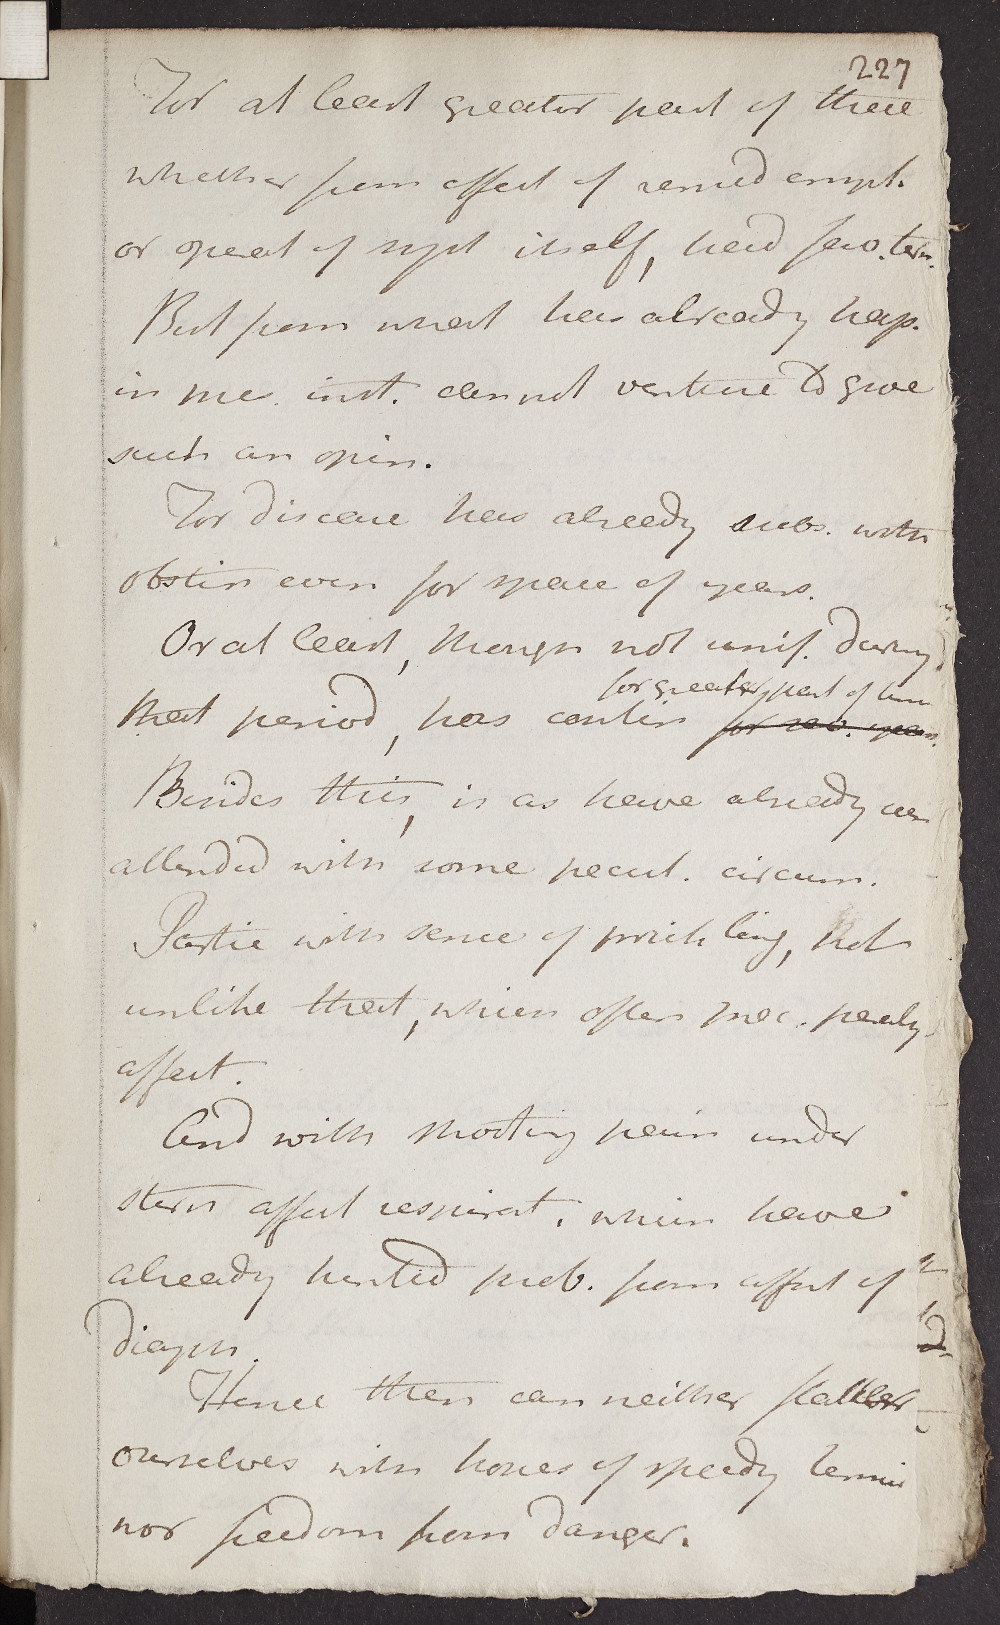 227
For at least greater part of these
whether from effect of remed empl.
or operat of syst itself, had fav. term.
But from what has already hap.
in me. inst. cannot venture to give
such an opin.
For disease has already subs. with
obstin even for space of years.
Or at least, though not unif. during
for greater part of time
that period, has contin for sev. years.
Besides this, is as have already seen
attended with some pecul. circum.
Partic with sense of prickling, not
unlike that, which often prec. paraly
affect.
And with shooting pain under
stern affect respirat. which have
already hinted prob. from affect of
diaph.
Hence then can neither flatter
ourselves with hopes of speedy termin
nor freedom from danger.